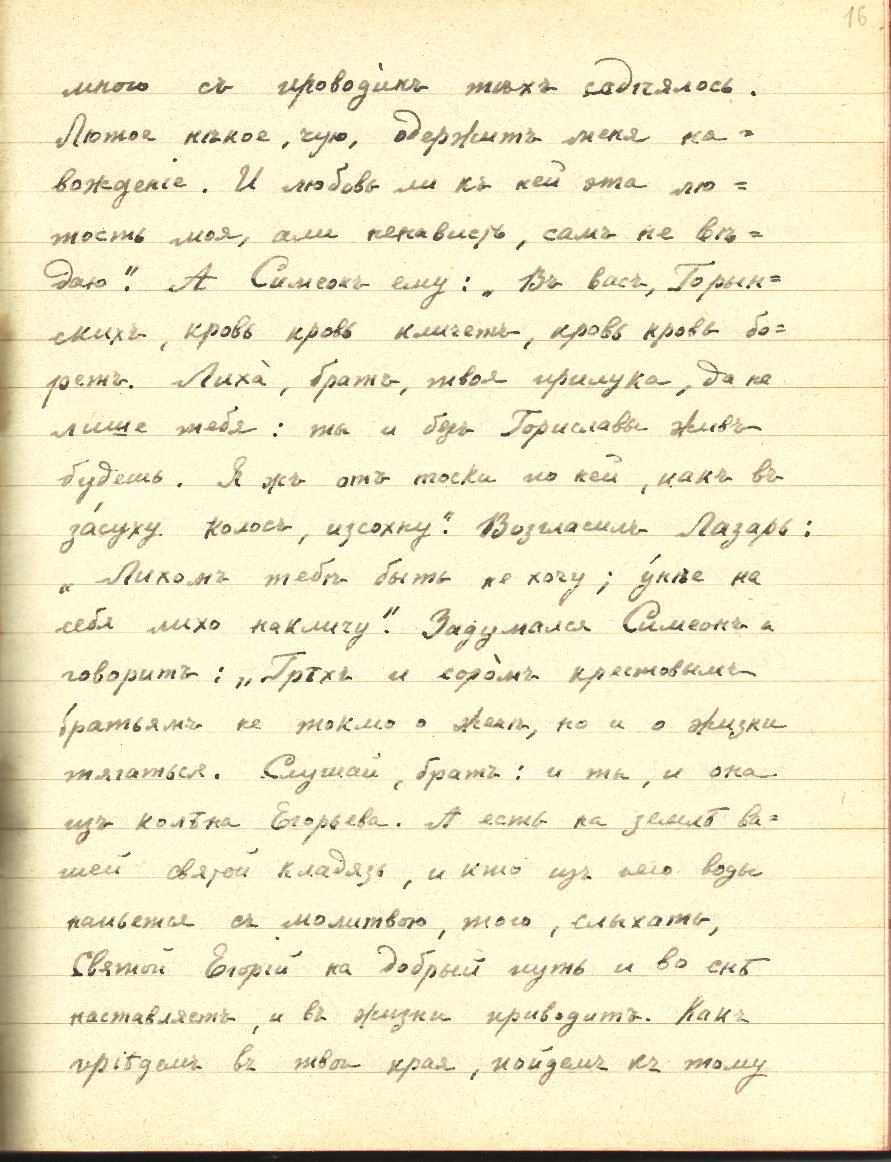 16
мною съ проводи́нъ тѣхъ содѣялось.
Лютое нѣкое, чую, одержитъ меня на=
вожденіе. И любовь ли къ ней эта лю=
тость моя, али ненависть, самъ не вѣ=
даю". А Симеонъ ему: „Въ васъ, Горын=
скихъ, кровь кровь кличетъ, кровь кровь бо=
ретъ. Лиха̀, братъ, твоя прилука, да не
лише тебя: ты и безъ Гориславы живъ
будешь. Я жъ отъ тоски по ней, какъ въ
за́суху колосъ, изсохну". Возгласилъ Лазарь:
„Лихомъ тебѣ быть не хочу; у́нѣе на
себя лихо накличу". Задумался Симеонъ и
говоритъ: „Грѣхъ и соро̀мъ крестовымъ
братьямъ не токмо о женѣ, но и о жизни
тягаться. Слушай, братъ: и ты, и она
изъ колѣна Егорьева. А есть на землѣ ва=
шей святой кладязь, и кто изъ него воды
напьется съ молитвою, того, слыхать,
Святой Егорій на добрый путь и во снѣ
наставляетъ, и въ жизни приводитъ. Какъ
пріѣдемъ въ твои края, пойдемъ къ тому